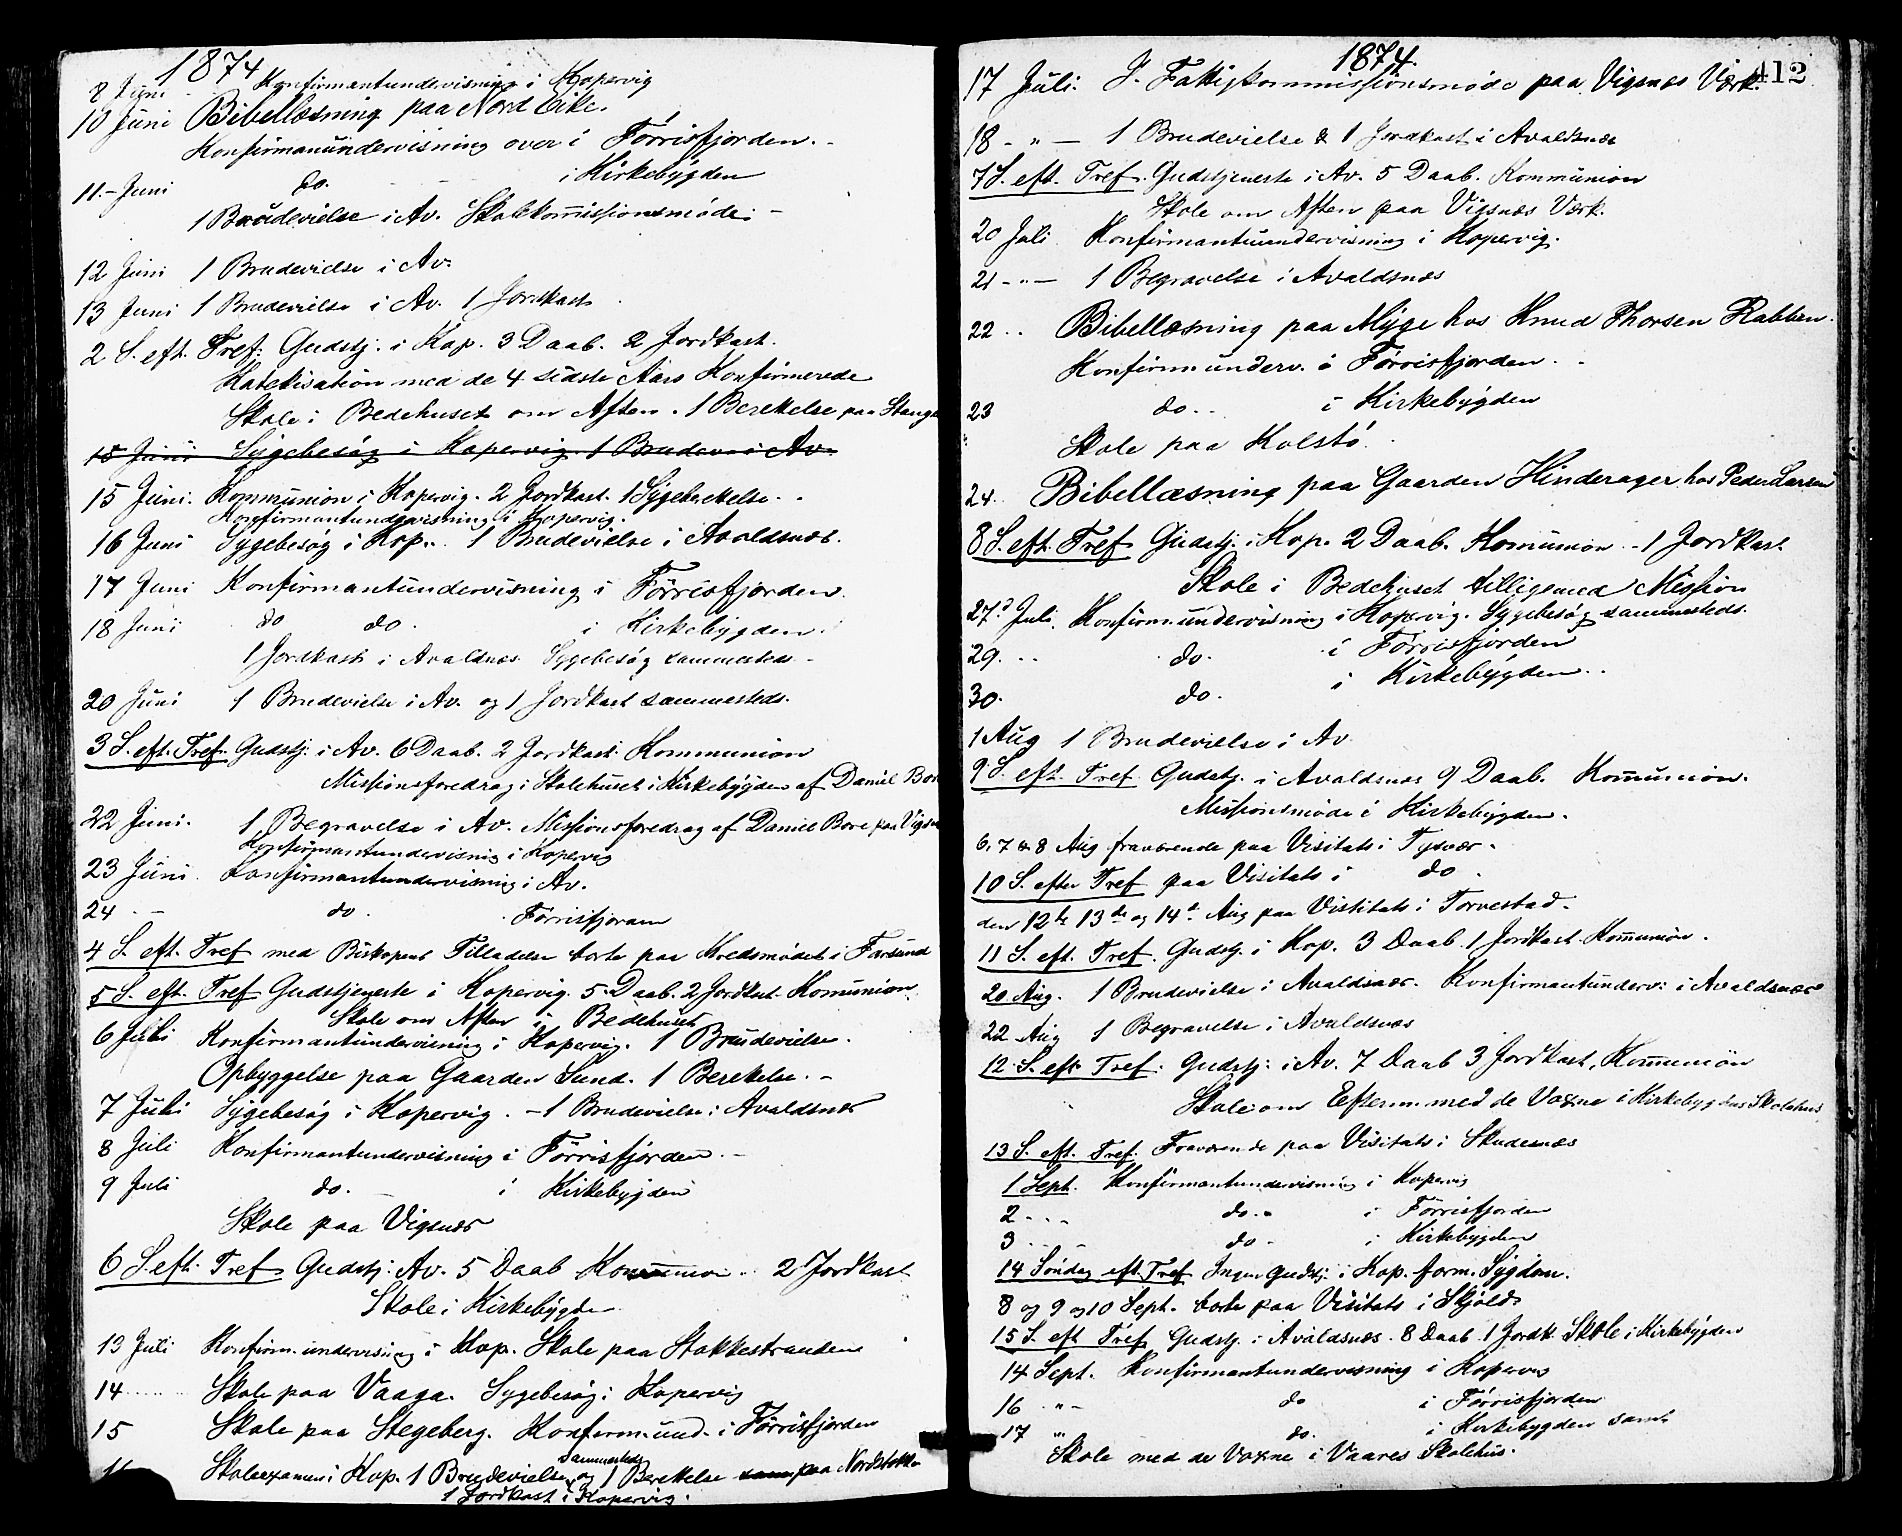 1874
8 Juni Konfirmantundervisning i Kopervig
10 Juni Bibellæsning paa Nord Eike.
Konfirmanundervisning over i Førrisfjorden.
11 - Juni do. i Kirkebygden
1 Brudevielse i Av. Skolekomissionsmøde. -
12 Juni 1 Brudevielse i Av.
13 Juni 1 Brudevielse i Av. 1 Jordkast
2 S. eft. Tref. Gudstj. i Kop. 3 Daab. 2 Jordkast.
Katekisation med de 4 sidste Aars Konfirmerede
Skole i Bedehuset om Aften. 1 Berekelse paa Stange
15 Juni Sygebesøg i Kopervig. 1 Brudev. i Av.
15 Juni. Kommunion i Kopervig. 2 Jordkast. 1 Sygeberekelse.
Konfirmantundervisning i Kopervig.
16 Juni Sygebesøg i Kop. 1 Brudevielse i Avaldsnæs.
17 Juni Konfirmantundervisning i Førrisfjorden.
18 Juni do do. i Kirkebygden.
1 Jordkast i Avaldsnæs. Sygebesøg sammesteds -
20 Juni 1 Brudevielse i Av. og 1 Jordkast sammesteds.
3 S. eft. Tref. Gudstj. i Av. 6 Daab. 2 Jordkast. Kommunion
Missionsforedrag i Skolehuset i Kirkebygden af Daniel Bore
22 Juni. 1 Begravelse i Av. Missionsforedrag af Daniel Bore paa Vigsn
Konfirmantundervisning i Kopervig
23 Juni. Konfirmantundervisning i Av.
24 - do. Førrisfjoram
4 S. eft. Tref med Biskopens Tilladelse borte paa Kredsmødet i Farsund
5 S. eft. Tref Gudstjeneste i Kopervig. 5 Daab. 2 Jordkast. Komunion.
Skole om Aften i Bedehuset
6 Juli Konfirmantundervisning i Kopervig. 1 Brudevielse.
Opbyggelse paa Gaarden Sund. 1 Berekelse. -
7 Juli Sygebesøg i Kopervig. - 1 Brudevielse i Avaldsnæs
8 Juli Konfirmantundervisning i Førrisfjorden. -
9 Juli do. i Kirkebygden
Skole paa Vigsnæs
6 S. eft. Tref Gudstj. i Av. 5 Daab Kommunion. 2 Jordkast
Skole i Kirkebygden
13 Juli Konfirm. undervisning i Kop. Skole paa Stokkestranden
14 Skole paa Vaaga. Sygebesøg i Kopervig
15 Skole paa Stegeberg. Konferm. und. i Førrisfjorden
Sammesteds
Skoleexamen i Kop. 1 Brudevielse og 1 Berekelse sam paa Nordstokke
1 Jordkast i Kopervig.
1874. 412
17 Juli. I Fattigkommissionsmøde paa Vigsnæs Værk.
18 - " - 1 Brudevielse & 1 Jordkast i Avaldsnæs
7 S. eft. Tref. Gudstjeneste i Av. 5 Daab. Kommunion
Skole om Aften paa Vigsnæs Værk.
20 Juli Konfirmantunundervisning i Kopervig.
21 - " - 1 Begravelse i Avaldsnæs
22 Bibellæsning paa Myge hos Knud Thorsen Rabben.
Konfirmunderv. i Førrisfjorden.
23 do. i Kirkebygden
Skole paa Kolstø.
24. Bibellæsning paa Gaarden Hinderager hos Peder Larsen
8 S. eft. Tref Gudstj. i Kop. 2 Daab. Komunion - 1 Jordkast
Skole i Bedehuset tilligemed Mission
27. Juli. Konfirm. undervisning i Kopervig. Sygebesøg sammesteds.
29. do. i Førrisfjorden
30. do. i Kirkebygden.
1 Aug 1 Brudevielse i Av
9 S. eft. Tref Gudstj. i Avaldsnæs 9 Daab. Komunion.
Missionsmøde i Kirkebygden.
6, 7 & 8 Aug fraværende paa Visitats i Tysvær.
10 S. efter Tref paa Visitats i do.
den 12te 13de og 14de Aug paa Vistitats i Torvestad.
11 S. eft. Tref. Gudstj. i Kop. 3 Daab 1 Jordkast Komunion.
20 Aug. 1 Brudevielse i Avaldsnæs. Konfirmantunderv: i Avaldsnæs
22 Aug 1 Begravelse i Avaldsnæs
12. S. eft Tref. Gudstj. i Av. 7 Daab 3 Jordkast, Komunion
Skole om Efterm. med de Voxne i Kirkebygdens Skolehus
13 S. eft. Tref. Fraværende paa Visitats i Skudesnæs
1 Sept. Konfirmantundervisning i Kopervig
2 do. i Førrisfjorden
3 do. i Kirkebygden
14 Søndag eft. Tref Ingen Gudstj. i Kop. form. Sygdom.
8 og 9 og 10 Sept. borte paa Visitats i Skjold.
15 S. eft Tref Gudstj. i Avaldsnæs. 8 Daab 1 Jordk. Skole i Kirkebygden
14 Sept. Konfirmantundervisning i Kopervig
16 " - do i Førrisfjorden
17 " do. i Kirkebygden samt
Skole med de Voxne i Vaares Skolehus.